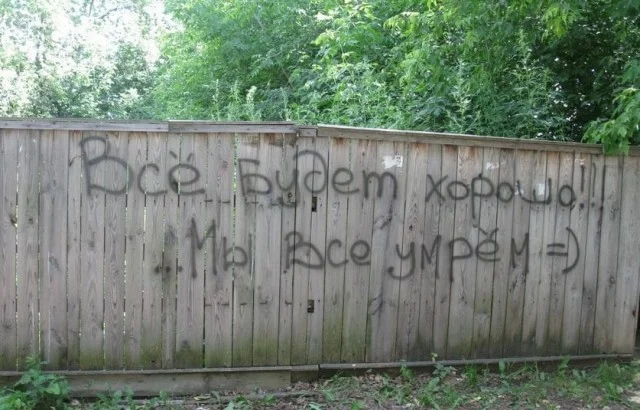 Всё будет хорошо!!!
..Мы все умрём =)